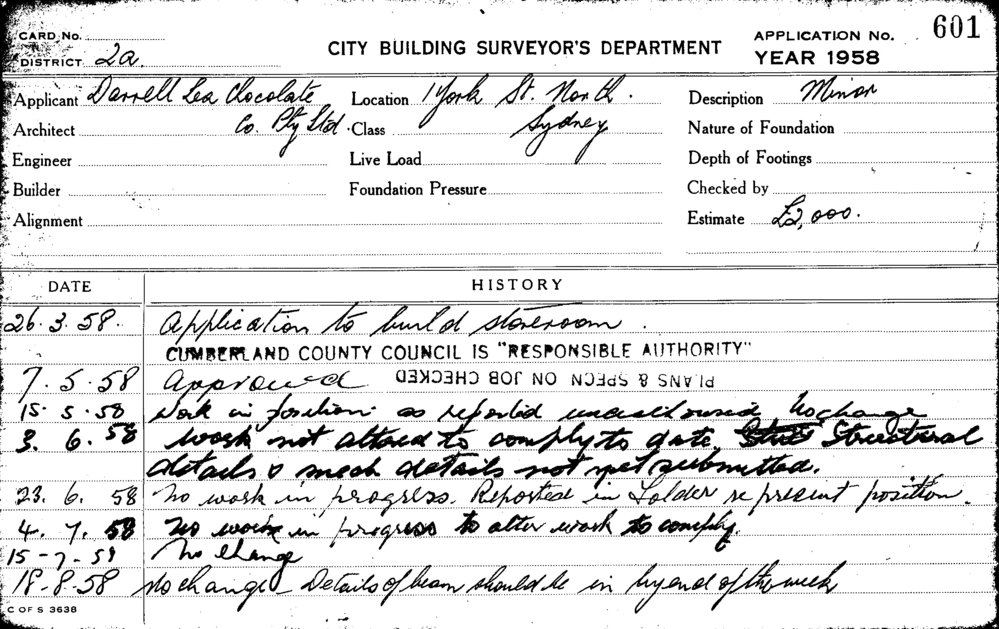 CARD No.
DISTRICT 2a.
CITY BUILDING SURVEYOR'S DEPARTMENT
APPLICATION No. 601
YEAR 1958
Applicant Darrell Lea Chocolate
Co. Pty Ltd.
Location 1 York St. North.
Sydney
Description Minor
Architect
Class
Nature of Foundation
Engineer
Live Load
Depth of Footings
Builder
Foundation Pressure
Checked by
Alignment
Estimate £2,000.
DATE HISTORY
26.3.58. Application to build storeroom.
CUMBERLAND COUNTY COUNCIL IS "RESPONSIBLE AUTHORITY"
7.5.58 Approved PLANS & SPECN ON JOB CHECKED
15.5.58 Work in position as reported unauthorised No change
3.6.58 work not altered to comply to date. Structural
details & mesh details not yet submitted.
23.6.58 No work in progress. Reported in folder re present position.
4.7.58 No work in progress to alter work to comply.
15-7-58 No change
18-8-58 No change Details of beam should be in by end of the week
C OF S 3638